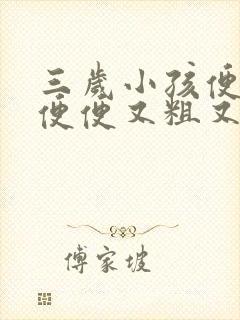 三岁小孩便
便便又粗又
傅家坡